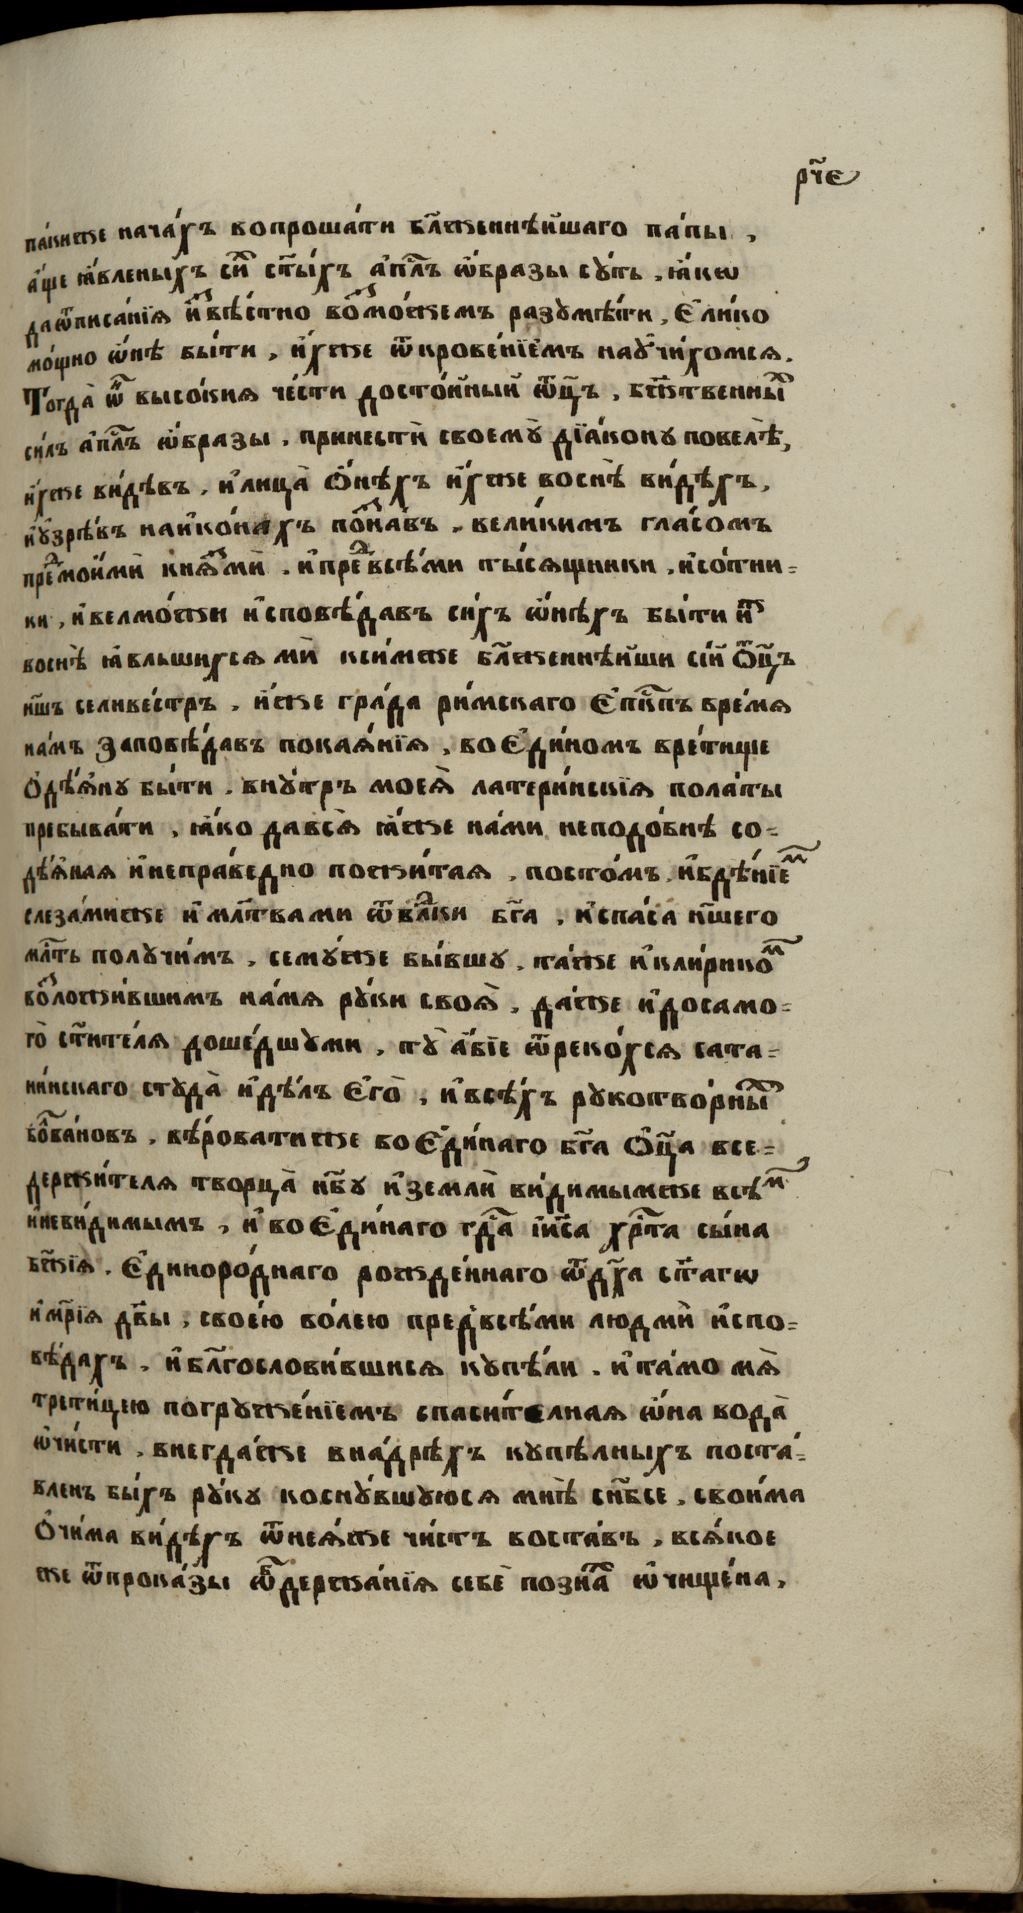 рч҃є
па́киже нача́хъ вопроша́ти бл҃же́ннѣйшаго па́пы ,
а́ще ꙗ҆вле́ныхъ си̑ ст҃ы́хъ а҆пⷭ҇лъ ѡ҆́бразы су́ть , ꙗ҆́кѡ
да ѿписа́нїѧ и҆звѣ́стно возмо́жемъ разумѣ́ти , є҆ли́ко
мо́щно ѡ҆́нѣ бы́ти , и҆́хже ѿкрове́нїемъ наꙋчи́хомсѧ .
Тогда̀ ѿ высо́киѧ че́сти досто́йный ѻ҆ц҃ъ , бж҃ственныⷯ
си́хъ а҆пⷭ҇лъ ѡ҆́бразы . принестѝ своемꙋ̀ дїа́кону повелѣ̀ ,
и҆́хже ви́дѣвъ . и҆ лица̀ ѻ҆́нѣхъ и҆́хже воснѣ̀ ви́дѣхъ ,
и҆ узрѣ́въ на и҆ко́нахъ позна́въ . вели́кимъ гла́сомъ
преⷣмои́ми кнѧⷥмѝ . и҆ преⷣвсѣ́ми ты́сѧщники , и҆ со́тни=
ки , и҆ велмо́жи и҆сповѣ́давъ си́хъ ѡ҆́нѣхъ бы́ти и҆̑
воснѣ̀ ꙗ҆́вльшихсѧ мѝ ксимъже бл҃же́ннѣйши сі́й ѻ҆ц҃ъ
нш҃ъ селиве́стръ . и҆́же гра́да ри́мскаго є҆пⷭ҇кпъ вре́мѧ
на́мъ заповѣ́давъ покаѧ́нїѧ , во є҆ди́номъ вре́тище
ѻ҆дѣ́ѧну бы́ти . вну́трь моеѧ̀ латери́нскїѧ пола́ты
пребыва́ти , ꙗ҆́ко да всѧ̀ ꙗ҆́же на́ми неподо́бнѣ со=
дѣ́ѧная и҆ непра́ведно пожи́таѧ , посто́мъ . и҆ бдѣ́нїеⷨ
слеза́миже и҆ мл҃твами ѿ влⷣки бг҃а , и҆ спа́са нш҃его
млⷭ҇ть полꙋчи́мъ . семꙋ́же бы́вшу , та́же и҆ кли́рикоⷨ
возложи́вшимъ на́мѧ рꙋ́ки своѧ̀ , да́же и҆ до само=
го̀ ст҃и́телѧ доше́дшꙋми , тꙋ̀ а҆́бїе ѿреко́хсѧ сата=
ни́нскаго студа̀ и҆ дѣ́лъ є҆го̀ , и҆ всѣ́хъ рꙋкотво́рныⷯ
болва́новъ . вѣ́роватиже во є҆ди́наго бг҃а ѻ҆ц҃а все=
держи́телѧ творца̀ нб҃у и҆ землѝ ви́димымже всѣⷨ
и҆ неви́димымъ , и҆ во є҆ди́наго гдⷭ҇а і҆и҃са хрⷭ҇та сы́на
бж҃їѧ . є҆диноро́днаго рожде́ннаго ѿ дх҃а ст҃агѡ
и҆ мр҃їѧ дв҃ы , свое́ю во́лею предвсѣ́ми людмѝ и҆спо=
вѣ́дахъ . и҆ бл҃гослови́вшисѧ кꙋпѣ́ли . и҆ та́мо мѧ̀
трети́цею погрꙋже́нїемъ спаси́телнаѧ ѡ҆́на вода̀
ѡ҆чи́сти . внегда́же в на́дрѣхъ кꙋпѣ́лныхъ поста́=
вленъ бы́хъ рꙋ́ку коснꙋ́вшуюсѧ мнѣ̀ сн҃бсе , свои́ма
ѻ҆чи́ма ви́дѣхъ ѿнеѧ́же чи́стъ воста́въ , всѧ́кое
же ѿ прока́зы ѿдержа́нїѧ себѐ позна́ⷯ ѡ҆чище́на ,